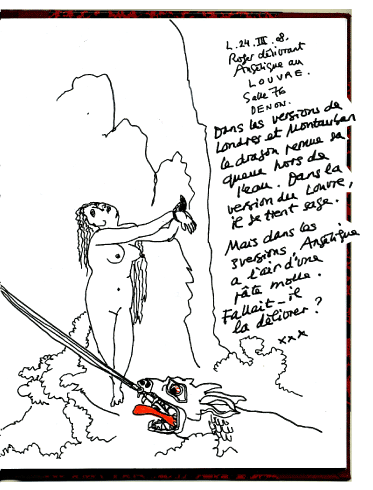 L. 24. III. 08.
Roger délivrant
Angélique au
LOUVRE.
Salle 76
DENON.
Dans les versions de
Londres et Montauban
le dragon remue sa
queue hors de
l'eau. Dans la
version du Louvre,
il se tient sage.
Mais dans les
3 versions, Angélique
a l'air d'une
pâte molle.
Fallait-il
la délivrer ?
xxx